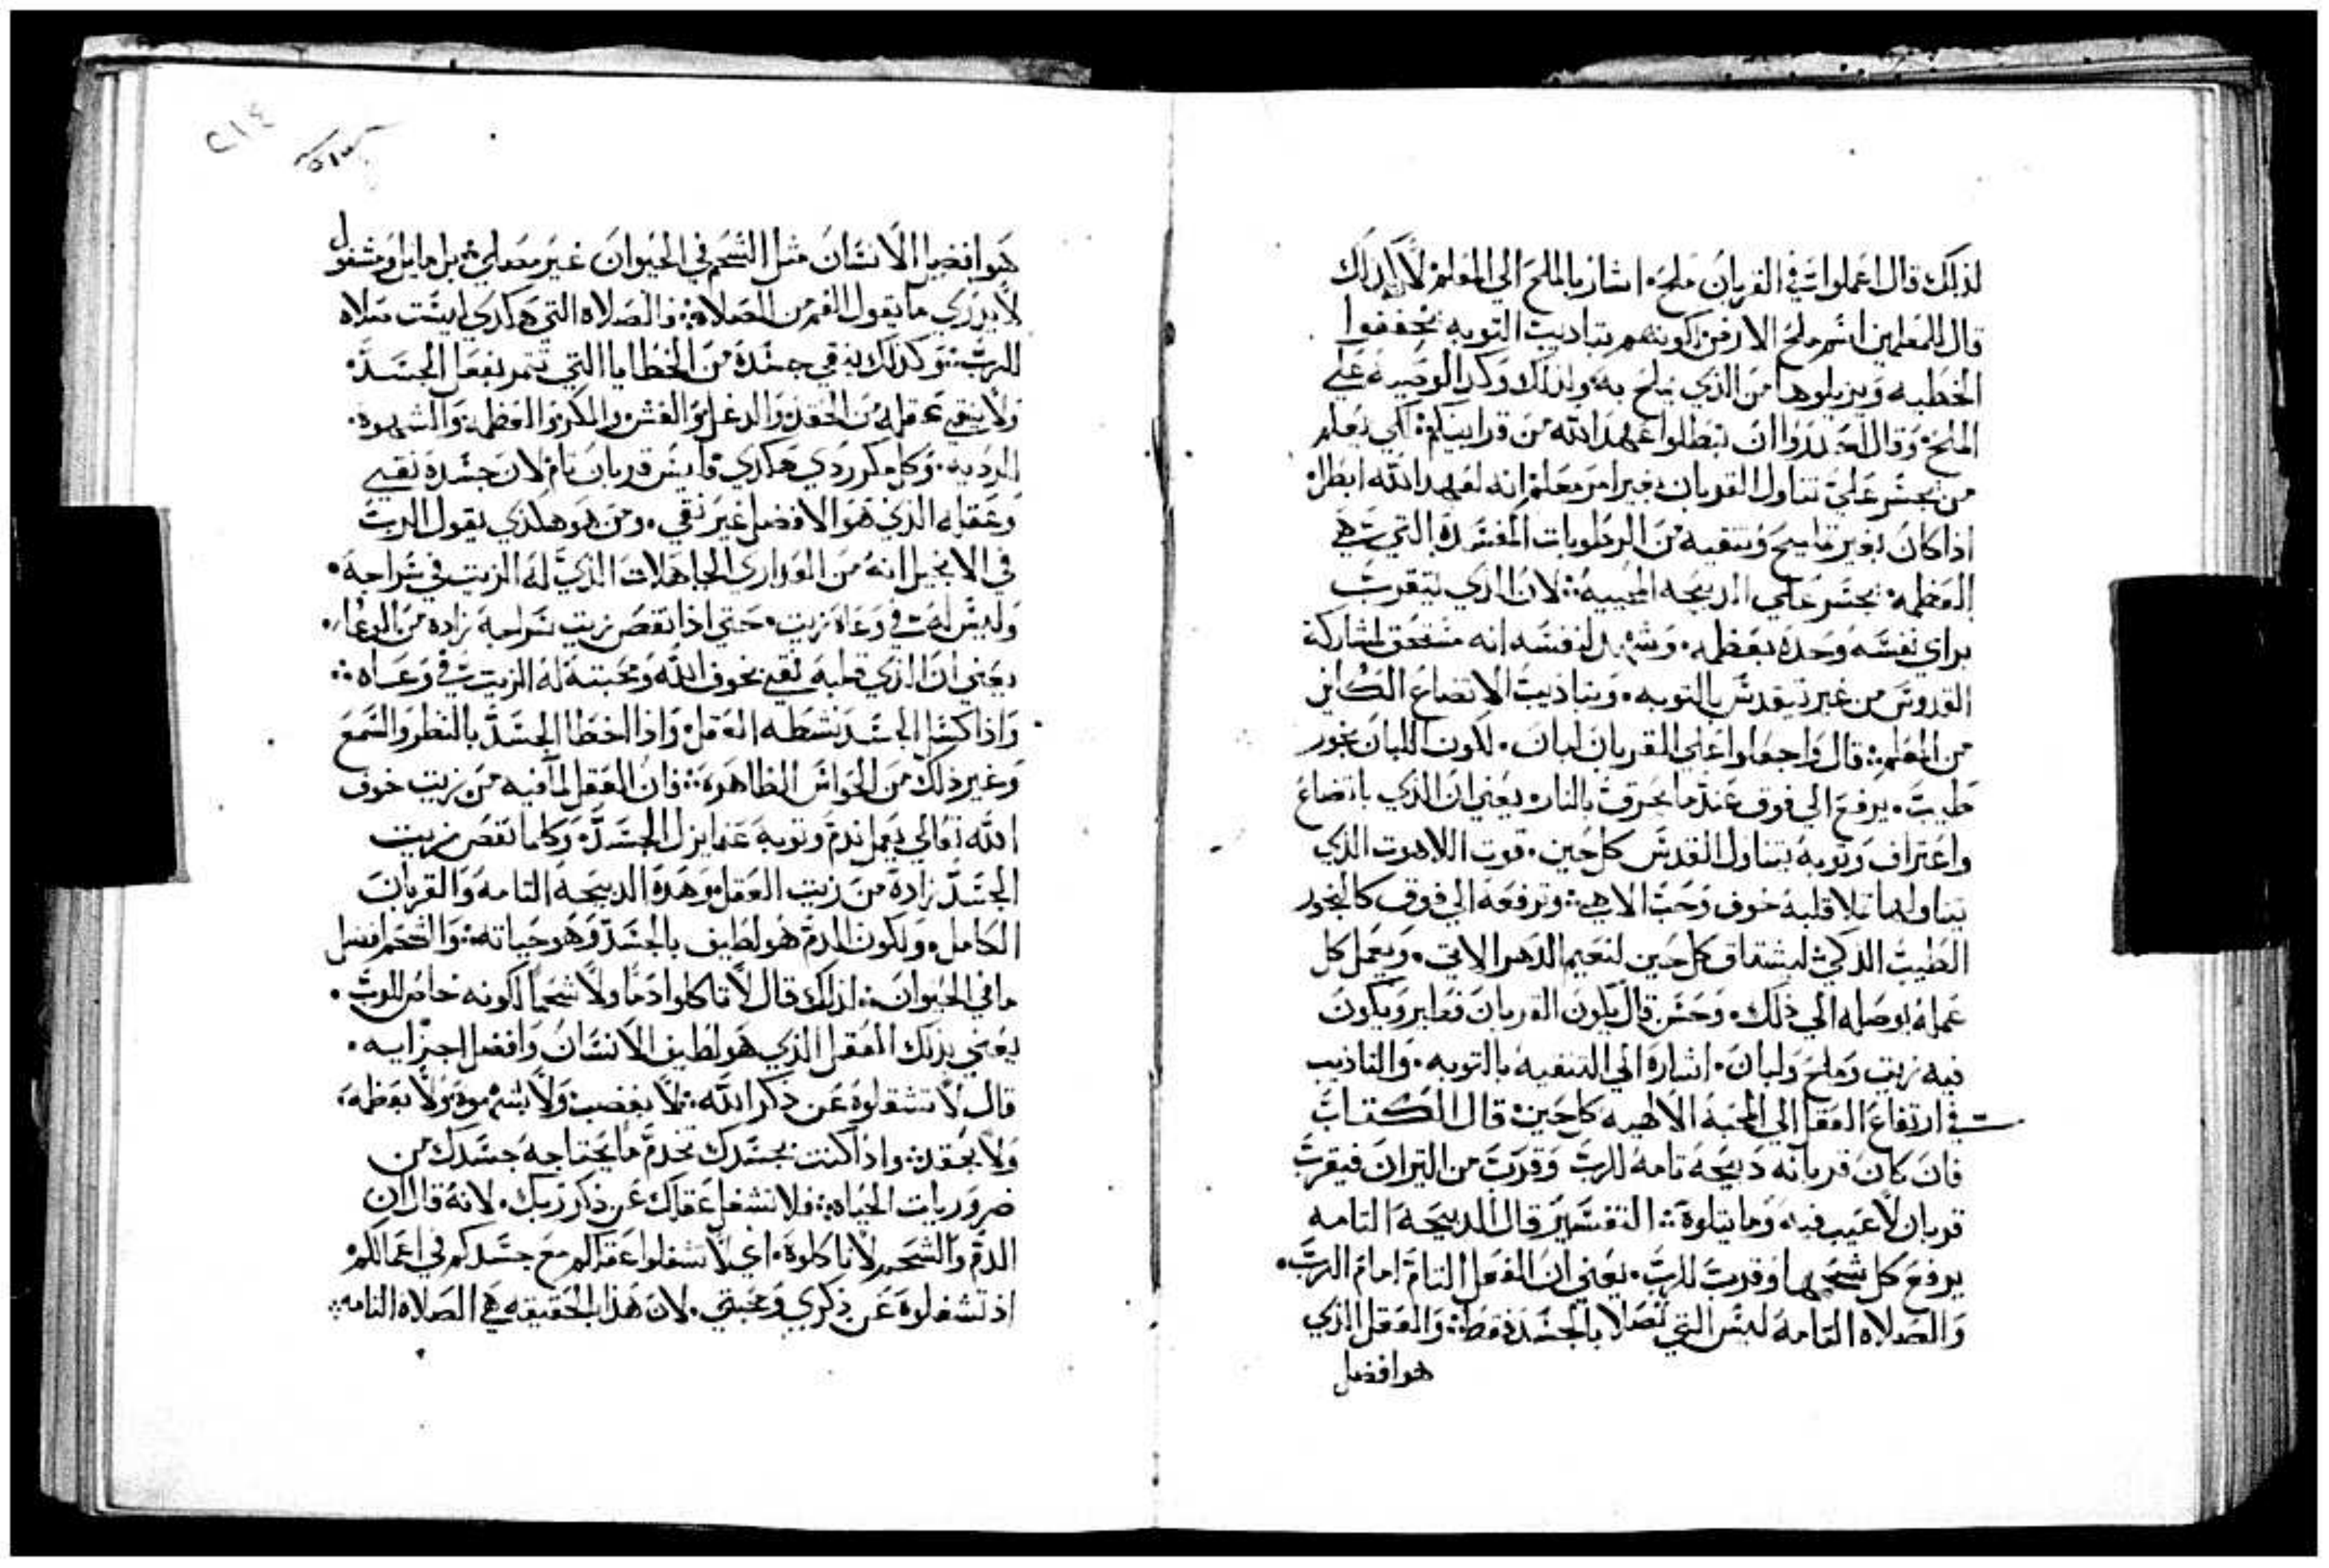 لذلك قال اعملوا في القربان ملح. اشار بالملح الي المعلم لان لذلك
قال للمعلمين انتم ملح الارض لكونهم بتاديب التوبه يجففوا
الخطيه ويزيلوها من الذي يملح به. ولذلك وكد الوصيه علي
الملح. وقال احدروا ان تبطلوا عهد الله من قرابينكم. لكي يعلم
من يجسر علي تناول القربان بغير امر معلم انه لعهد الله ابطل
اذا كان بغير تمليح وتنقيه من الرطوبات المفسده التي هي
العظمه. يجسر علي الدبيحه المحييه: لان الذي يتقرب
براي نفسه وحده بعظمه. وشهد لنفسه انه مستحق لمشاركة
القدوس من غير تقدس بالتوبه. وبتاديب الاتضاع الكاين
من المعلم: قال واجعلوا علي القربان لبان. لكون اللبان بخور
طيب. يرفع الي فوق عندما يحرق بالنار. يعني ان الذي باتضاع
واعتراف وتوبه يتناول القدس كل حين. قوت اللاهوت الذي
يتناولها تملا قلبه خوف وحب الاهي: وترفعه الي فوق كالبخور
الطيب الذكي: ليشتاق كل حين لنعيم الدهر الاتي. ويعمل كل
عمله يوصله الي ذلك. وحسن قال يكون القربان فطير ويكون
فيه زيت وملح ولبان. اشاره الي التنقيه بالتوبه. والتاديب
في ارتفاع العقل الي المحبه الالهيه كل حين: قال الكتاب
فان كان قربانه دبيحه تامه للرب وقرب من التيران فيقرب
قربان لا عيب فيه وما يتلوه: التفسير قال الدبيحه التامه
يرفع كل شحمها وقرب للرب. يعني ان الفعل التام امام الرب.
والصلاه التامه ليس التي تصلا بالجسد فقط: والعقل الذي
هو افضل
٢١٤
هو افضل الانسان مثل الشحم في الحيوان غير مصلي: بل مايل ومشغول
لا يدري ما يقول الفم من الصلاه: فالصلاه التي هكدي ليست صلاه
للرب: وكذلك ينقي جسده من الخطايا التي تتم بفعل الجسد.
ولا ينقي عقله من الحقد والدغل والغش والمكر والعظمه والشهوه.
الرديه. وكل مكر ردي هكدي. فليس قربان تام لان جسده نقي
وعقله الذي هو الافضل غير نقي. ومن هو هكذي يقول الرب
في الانجيل انه من العداري الجاهلات الذي له الزيت في سراجه.
وليس له في وعاه زيت. حتي اذا نقص زيت سراجه زاده من الوعا.
يعني ان الذي قلبه نقي بخوف الله ومحبته له الزيت في وعاه:
واذا كسل الجسد نشطه العقل. واذا اخطا الجسد بالنظر والسمع
وغير ذلك من الحواس الظاهره: فان العقل لما فيه من زيت خوف
الله تعالي يعمل ندم وتوبه عما يزل الجسد. وكلما نقص زيت
الجسد زاده من زيت العقل وهده الدبيحه التامه والقربان
الكامل. ولكون الدم هو لطيف بالجسد وهو حياته: والشحم افضل
ما في الحيوان: لذلك قال لا تاكلوا دما ولا شحما لكونه خاص للرب.
يعني بذلك العقل الذي هو لطيف الانسان وافضل اجزايه.
قال لا تشغلوه عن ذكر الله: لا بغضب ولا بشهوه ولا بعظمه.
ولا بحقد: واذا كنت بجسدك تخدم ما يحتاجه جسدك من
ضروريات الحياه: فلا تشغل عقلك عن ذكر ربك. لانه قال ان
الدم والشحم لا تاكلوه. اي لا تشغلوا عقلكم مع جسدكم في اعمالكم
اذ تشغلوه عن ذكري ومحبتي. لان هذا بالحقيقه هي الصلاه التامه: